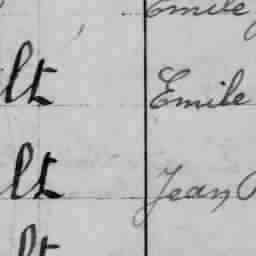 Emile
lt Emile
lt Jean
lt